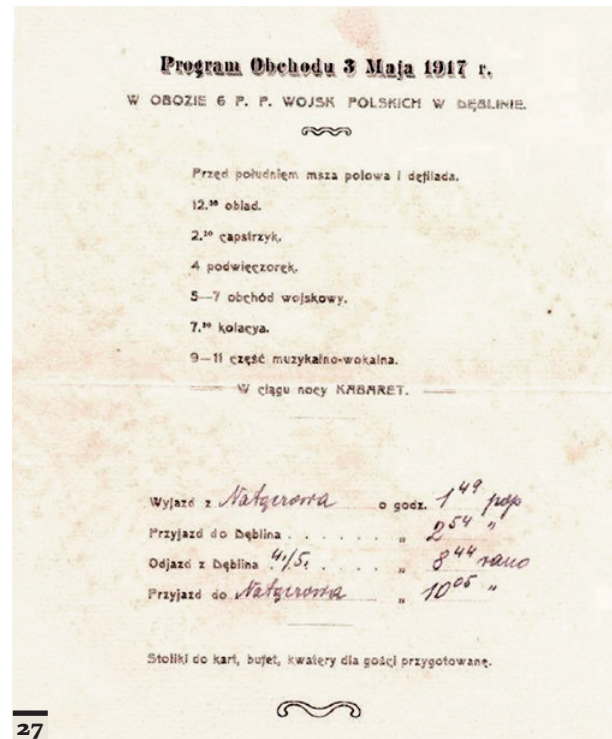 Program Obchodu 3 Maja 1917 r.
W OBOZIE 6 P. P. WOJSK POLSKICH W DĘBLINIE.
Przed południem msza polowa i defilada.
12.³⁰ obiad.
2.³⁰ capstrzyk.
4 podwieczorek.
5—7 obchód wojskowy.
7.³⁰ kolacya.
9—11 część muzykalno-wokalna.
W ciągu nocy KABARET.
Wyjazd z o godz. 1⁴⁹ pop
Przyjazd do Dęblina . . . . . . . „ 2⁵⁴ "
Odjazd z Dęblina 4./5. . . . . . „ 8⁴⁴ rano
Przyjazd do „ 10⁰⁵ "
Stoliki do kart, bufet, kwatery dla gości przygotowane.
27